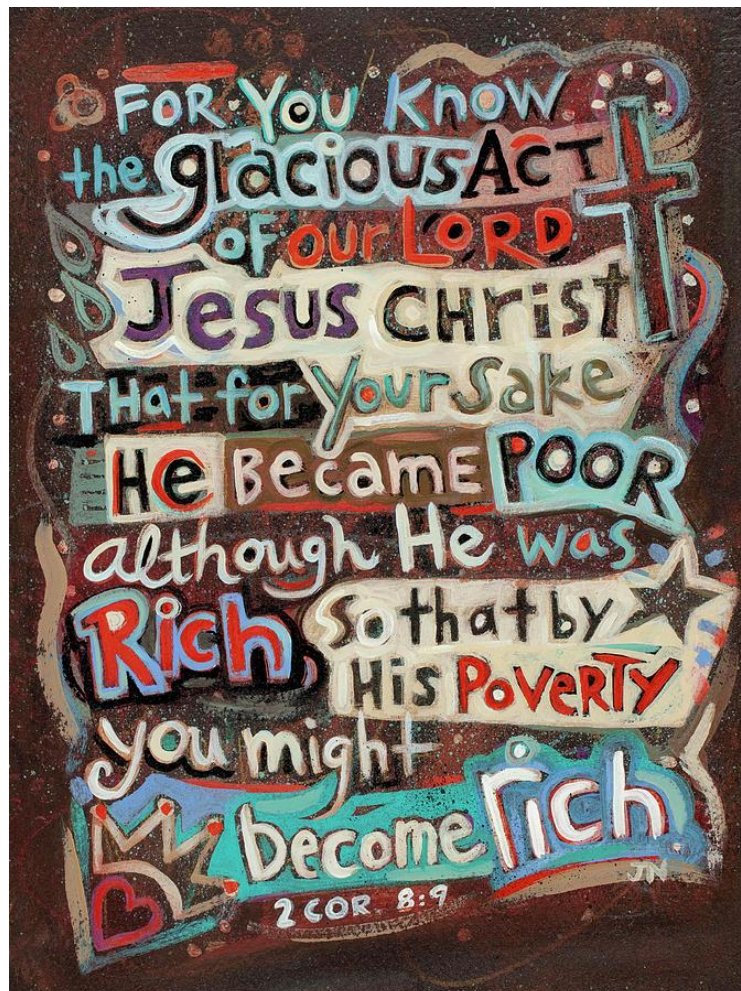 FOR YOU KNOW
the graciousAcT
OF OUR LORD
Jesus CHrist
THat for Your Sake
He Became POOR
although He was
Rich, so that by
His PoverTY
you might
become rich.
JN
2 COR 8:9